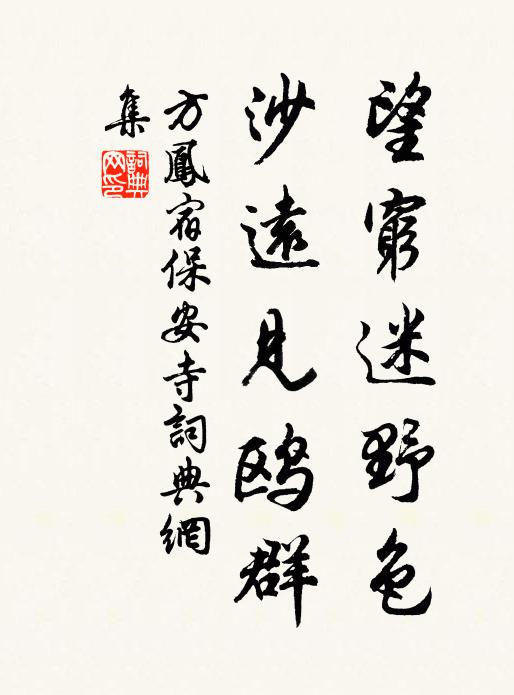 望窮迷野色
沙遠見鷗群
方鳳宿保安寺詞典網
集
詞典網印